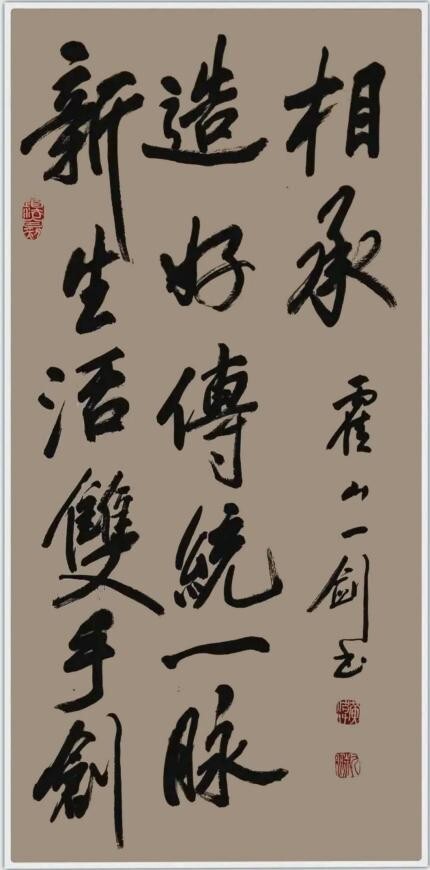 新生活雙手創
造好傳統一脈
相承
霍山一劍书